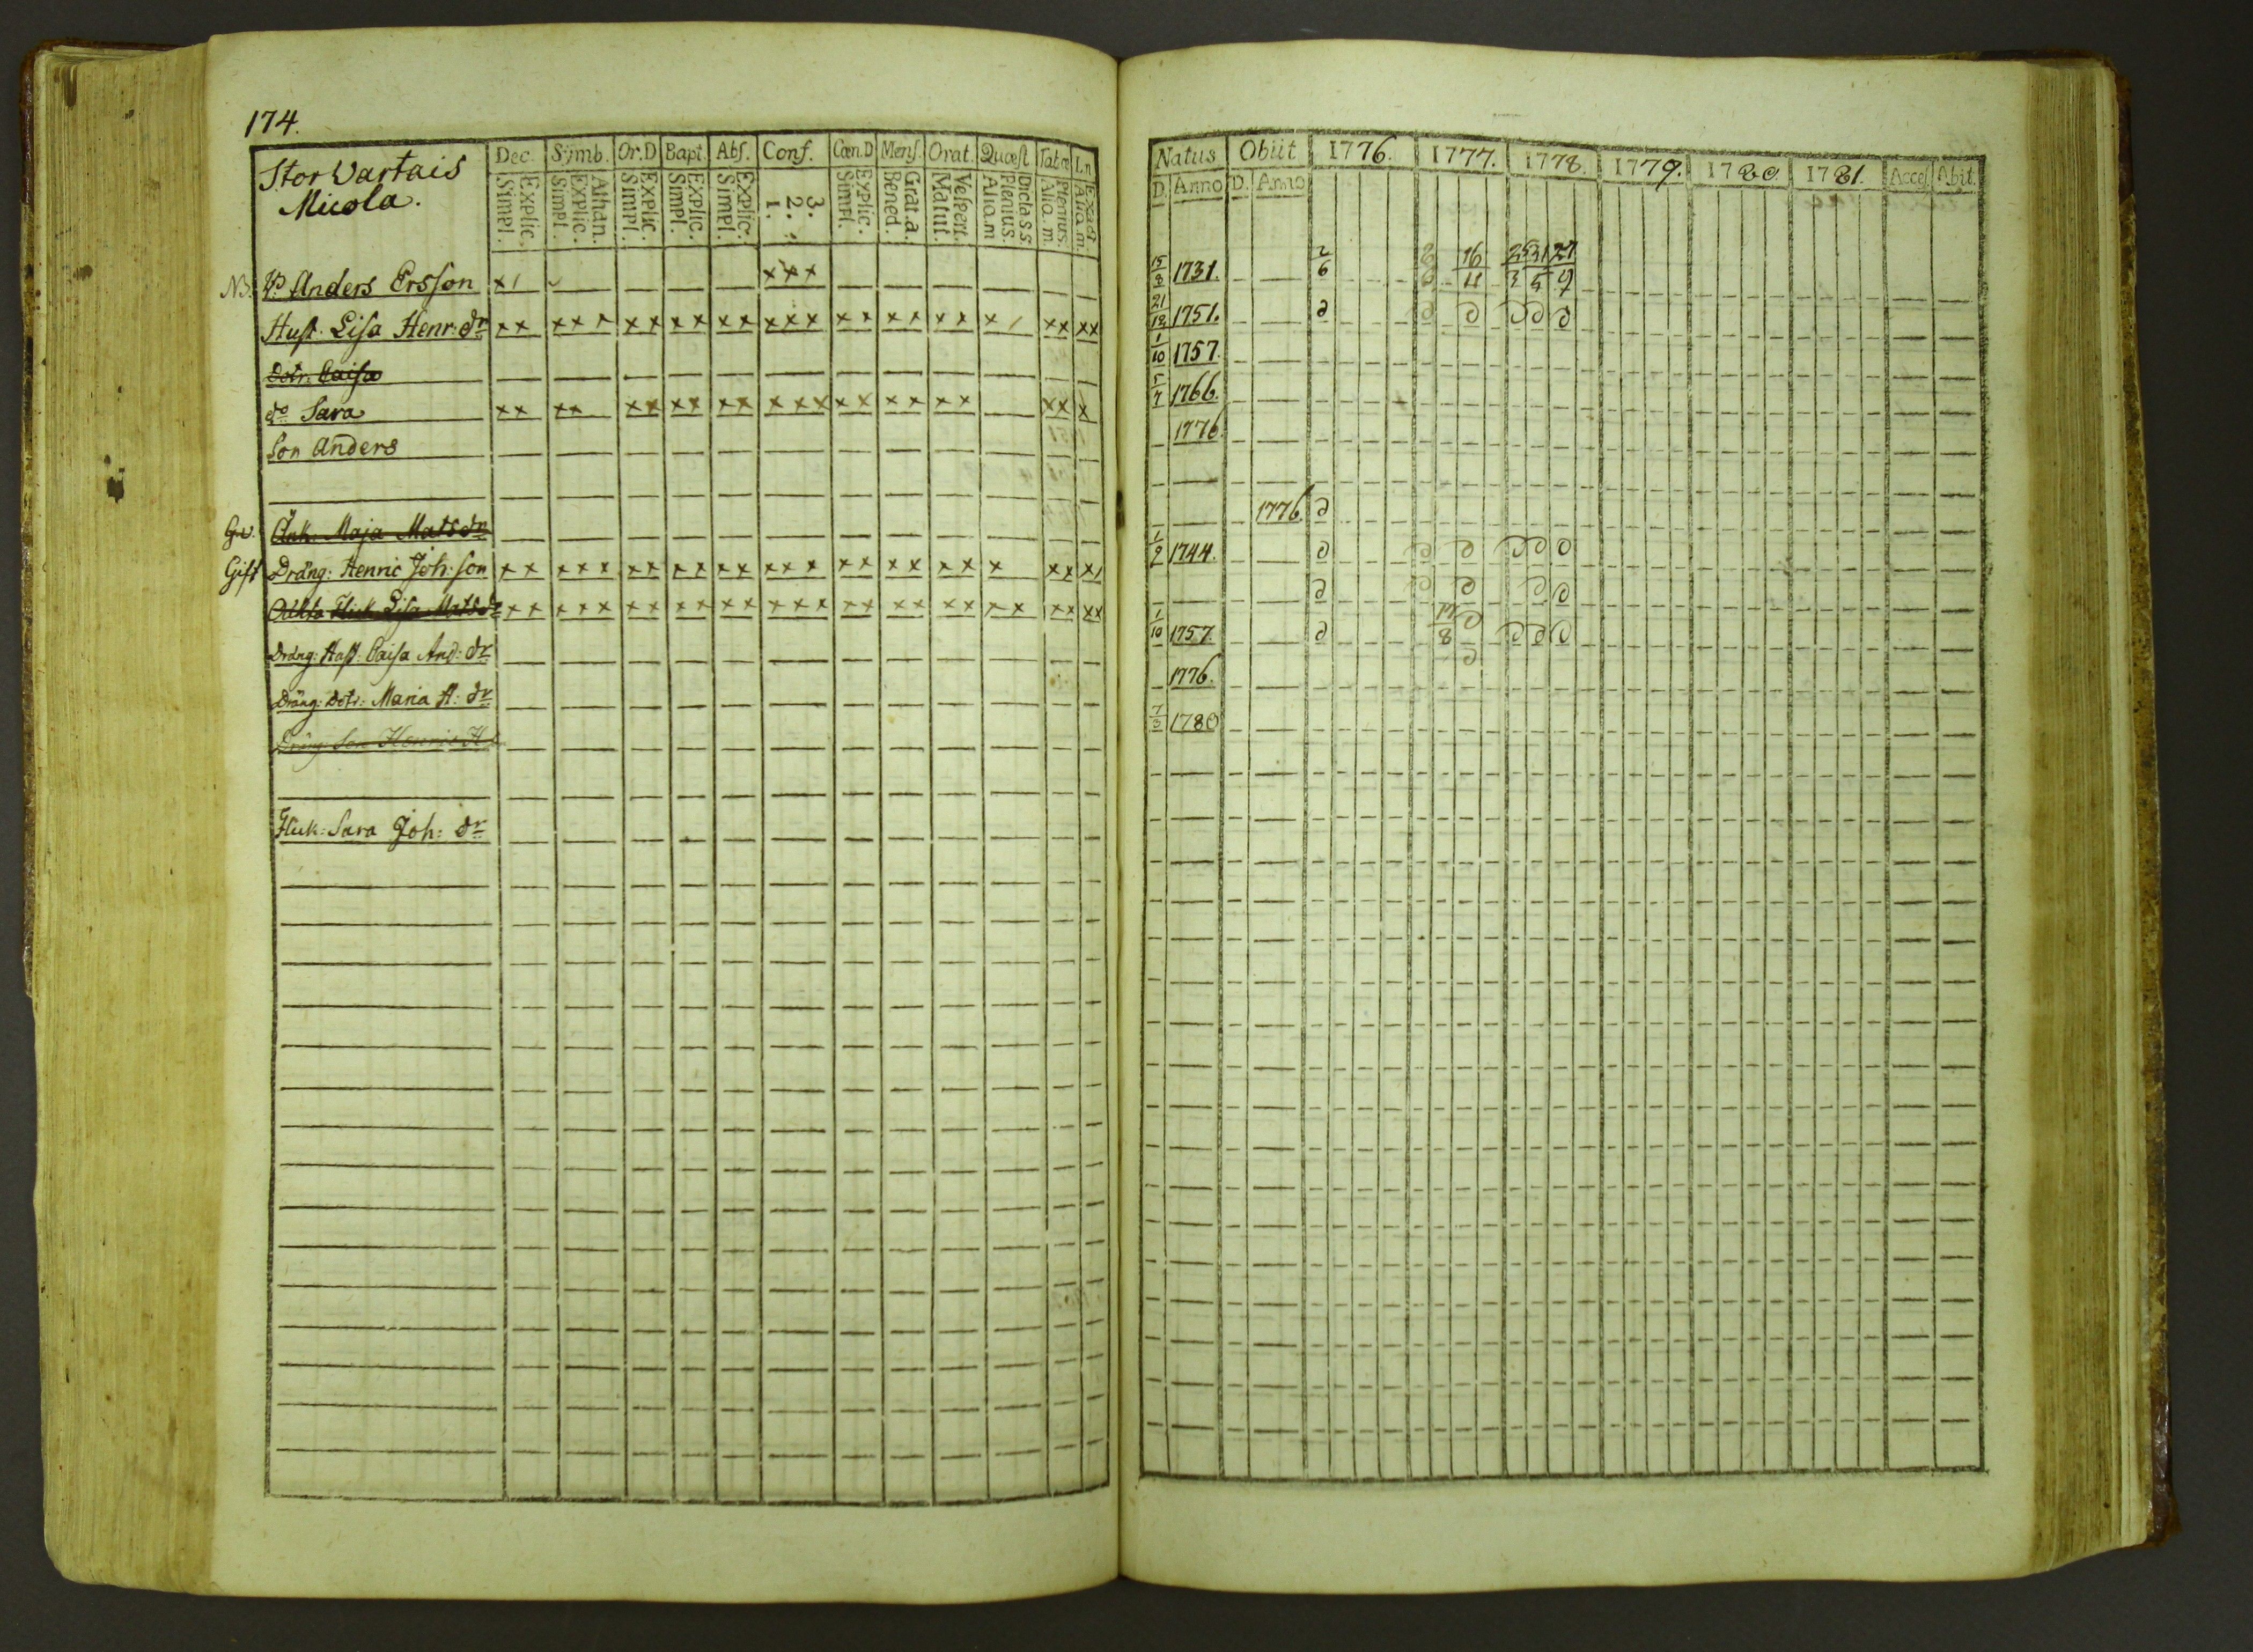 174.
Stor Wartais
Micola.
Dec. Symb. Or.D Bapt. Abs. Conf. Cœn.D Mens. Orat. Quæst Tabœ
Simpl. Explic. Simpl. Explic. Athan. Simpl. Explic. Simpl. Explic. Simpl. Explic. 1. 2. 3. Simpl. Explic. Bened. Grat.a. Matut. Vespert. Alio.m Plenius. Dicta SS Alia.m. Plenius.
Anders Ersson x x x x
Hust. Lisa Henr: dr x x x x x x x x x x x x x x x x x x x x x x x x x x
Dotr. Caisa
do Sara x x x x x x x x x x x x x x x x x x x x x x
Son Anders
Enk. Maja Matsdr
Gift Dräng: Henric Joh: son x x x x x x x x x x x x x x x x x x x x x x x x
Lisa Matsdr x x x x x x x x x x x x x x x x x x x x x x x x x x
Dräng: Hust: Caisa And: dr
Dräng: Dotr: Maria H: dr
Dräng: Son Henric H
Flick: Sara Joh: dr
Natus Obiit 1776. 1777. 1778. 1779. 1780 1781. Acces Abit.
D. Anno D. Anno
15/8 1731. 2/6 16/11 25/3 31/5 27/9
21/12 1751.
1/10 1757.
1766.
1776.
1776
1/2 1744.
1/10 1757.
1776.
7/3 1780